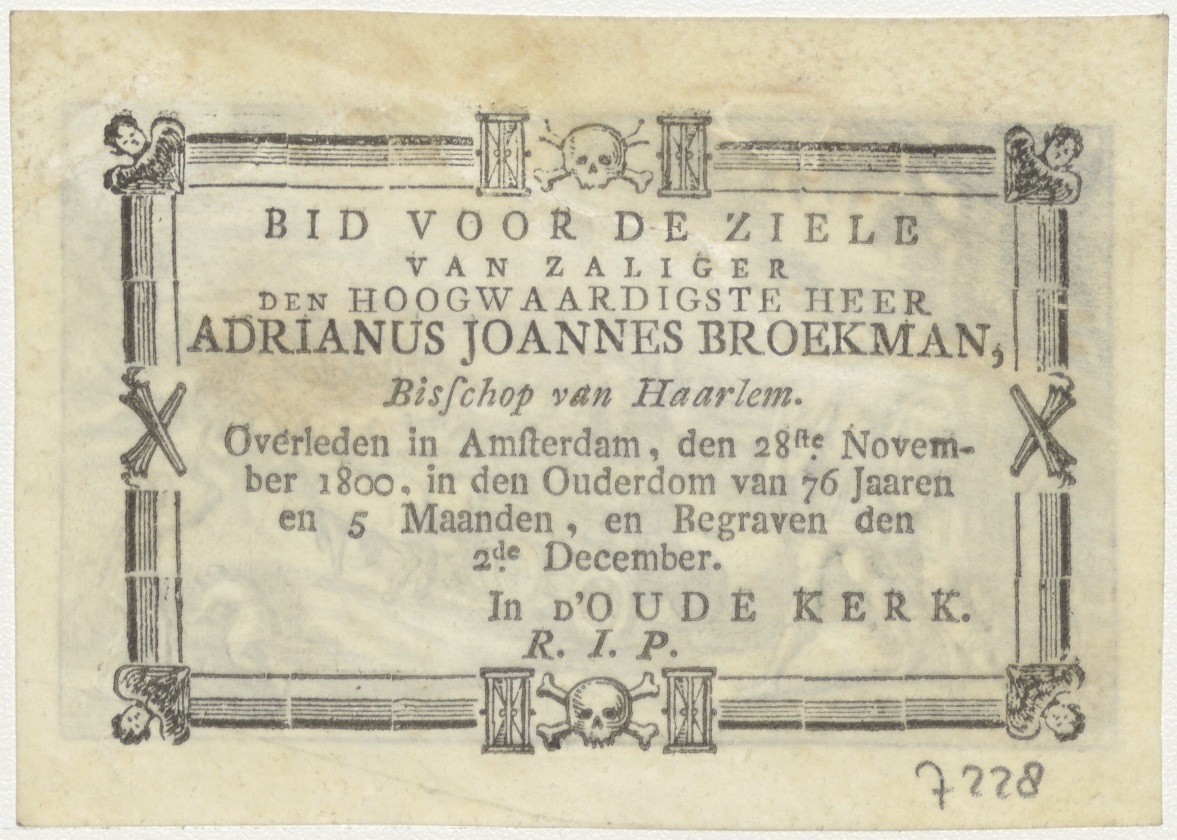 BID VOOR DE ZIELE
VAN ZALIGER
DEN HOOGWAARDIGSTE HEER
ADRIANUS JOANNES BROEKMAN,
Bisſchop van Haarlem.
Overleden in Amſterdam, den 28ſte. Novem-
ber 1800. in den Ouderdom van 76 Jaaren
en 5 Maanden, en Begraven den
2de. December.
In D'OUDE KERK.
R. I. P.
7228